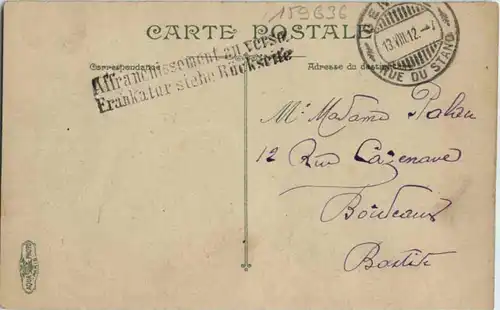 159636
CARTE POSTALE
Correspondance
Affranchissement au verso.
Frankatur siehe Rückseite
Adresse du destinat
13.VIII.12.-7
RUE DU STAND
Mr Madame
12 Rue Cazenave
Bordeaux
Bastide